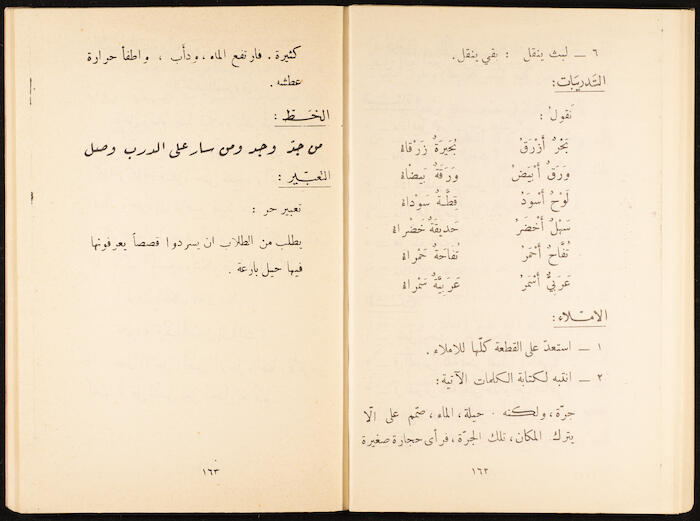 ٦ ـ لبث ينقل : بقي ينقل.
التدريبات:
نَقول:
بَحْرٌ أَزْرَقُ بُحَيْرَةٌ زَرْقاء
وَرَقٌ أَبْيَضُ وَرَقَةٌ بَيْضاء
لَوْحٌ أَسْوَدُ قِطَّةٌ سَوْداء
سَهْلٌ أَخْضَرُ حَديقَةٌ خَضْراء
تُفّاحٌ أَحْمَرُ تُفّاحَةٌ حَمْراء
عَرَبِيٌّ أَسْمَرُ عَرَبِيَّةٌ سَمْراء
الاملاء:
١ ـ استعدّ على القطعة كلّها للاملاء.
٢ ـ انتبه لكتابة الكلمات الآتية:
جرّة، ولكنه . حيلة، الماء، صمّم على الّا
يترك المكان، تلك الجرّة، فرأى حجارة صغيرة
١٦٢
كثيرة. فارتفع الماء، ودأب ، واطفأ حرارة
عطشه.
الخط:
من جدّ وجد ومن سار على الدرب وصل
التعبير:
تعبير حر :
يطلب من الطلاب ان يسردوا قصصاً يعرفونها
فيها حيل بارعة .
١٦٣